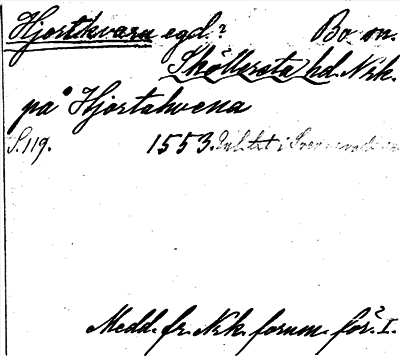 Hjortkvarn egd.? Bo sn.
Sköllersta hd. Nrk.
på Hjortahvena
S. 119. 1553. i
Medd. fr. Nrk. fornm. för. I.